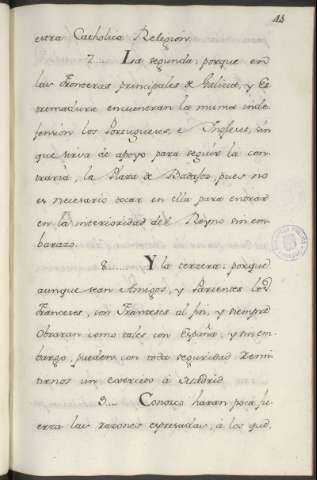 13
estra Catholica Religion.
7.... La segunda: porque en
las Fronteras principales de Galicia, y Es
tremadura encuentran la misma inde
fension los Portugueses, e Ingleses, sin
que sirva de apoyo para seguir la con
traria, la Plaza de Badajoz, pues no
es necesario tocar en ella para entrar
en la interioridad del Reyno sin em
barazo.
8..... Y la tercera: porque
aunque sean Amigos, y Parientes los
Franceses, son Franceses al fin, y siempre
Obraran como tales con España, y sin em
bargo, pueden con toda seguridad Remi
tirnos un exercito à Madrid.
9.... Conosco haran poca fu
erza las razones expresadas, à los que,